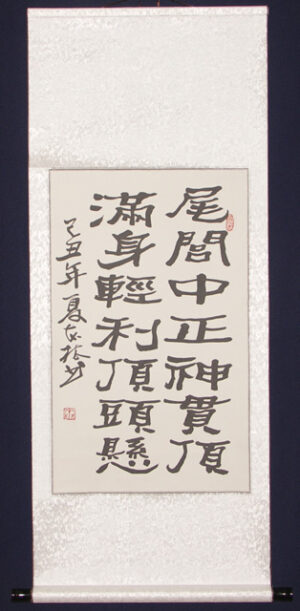 尾閭中正神貫頂
滿身輕利頂頭懸
己丑年夏